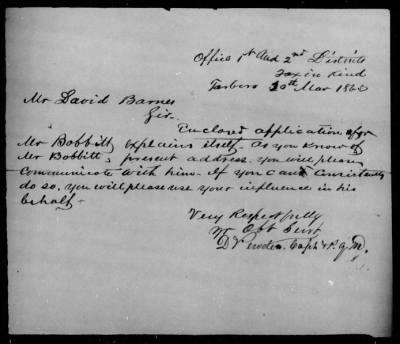 Office 1st And 2nd Districts
Tax in Kind
Tarboro 20th Mar 186
Mr David Barnes
Sir.
Enclosed application of
Mr Bobbitt explains itself. As you know of
Mr Bobbitts present address you will please
communicate with him. If you can consistently
do so, you will please use your influence in his
behalf.
Very Respectfully
Obt Servt
Capt &